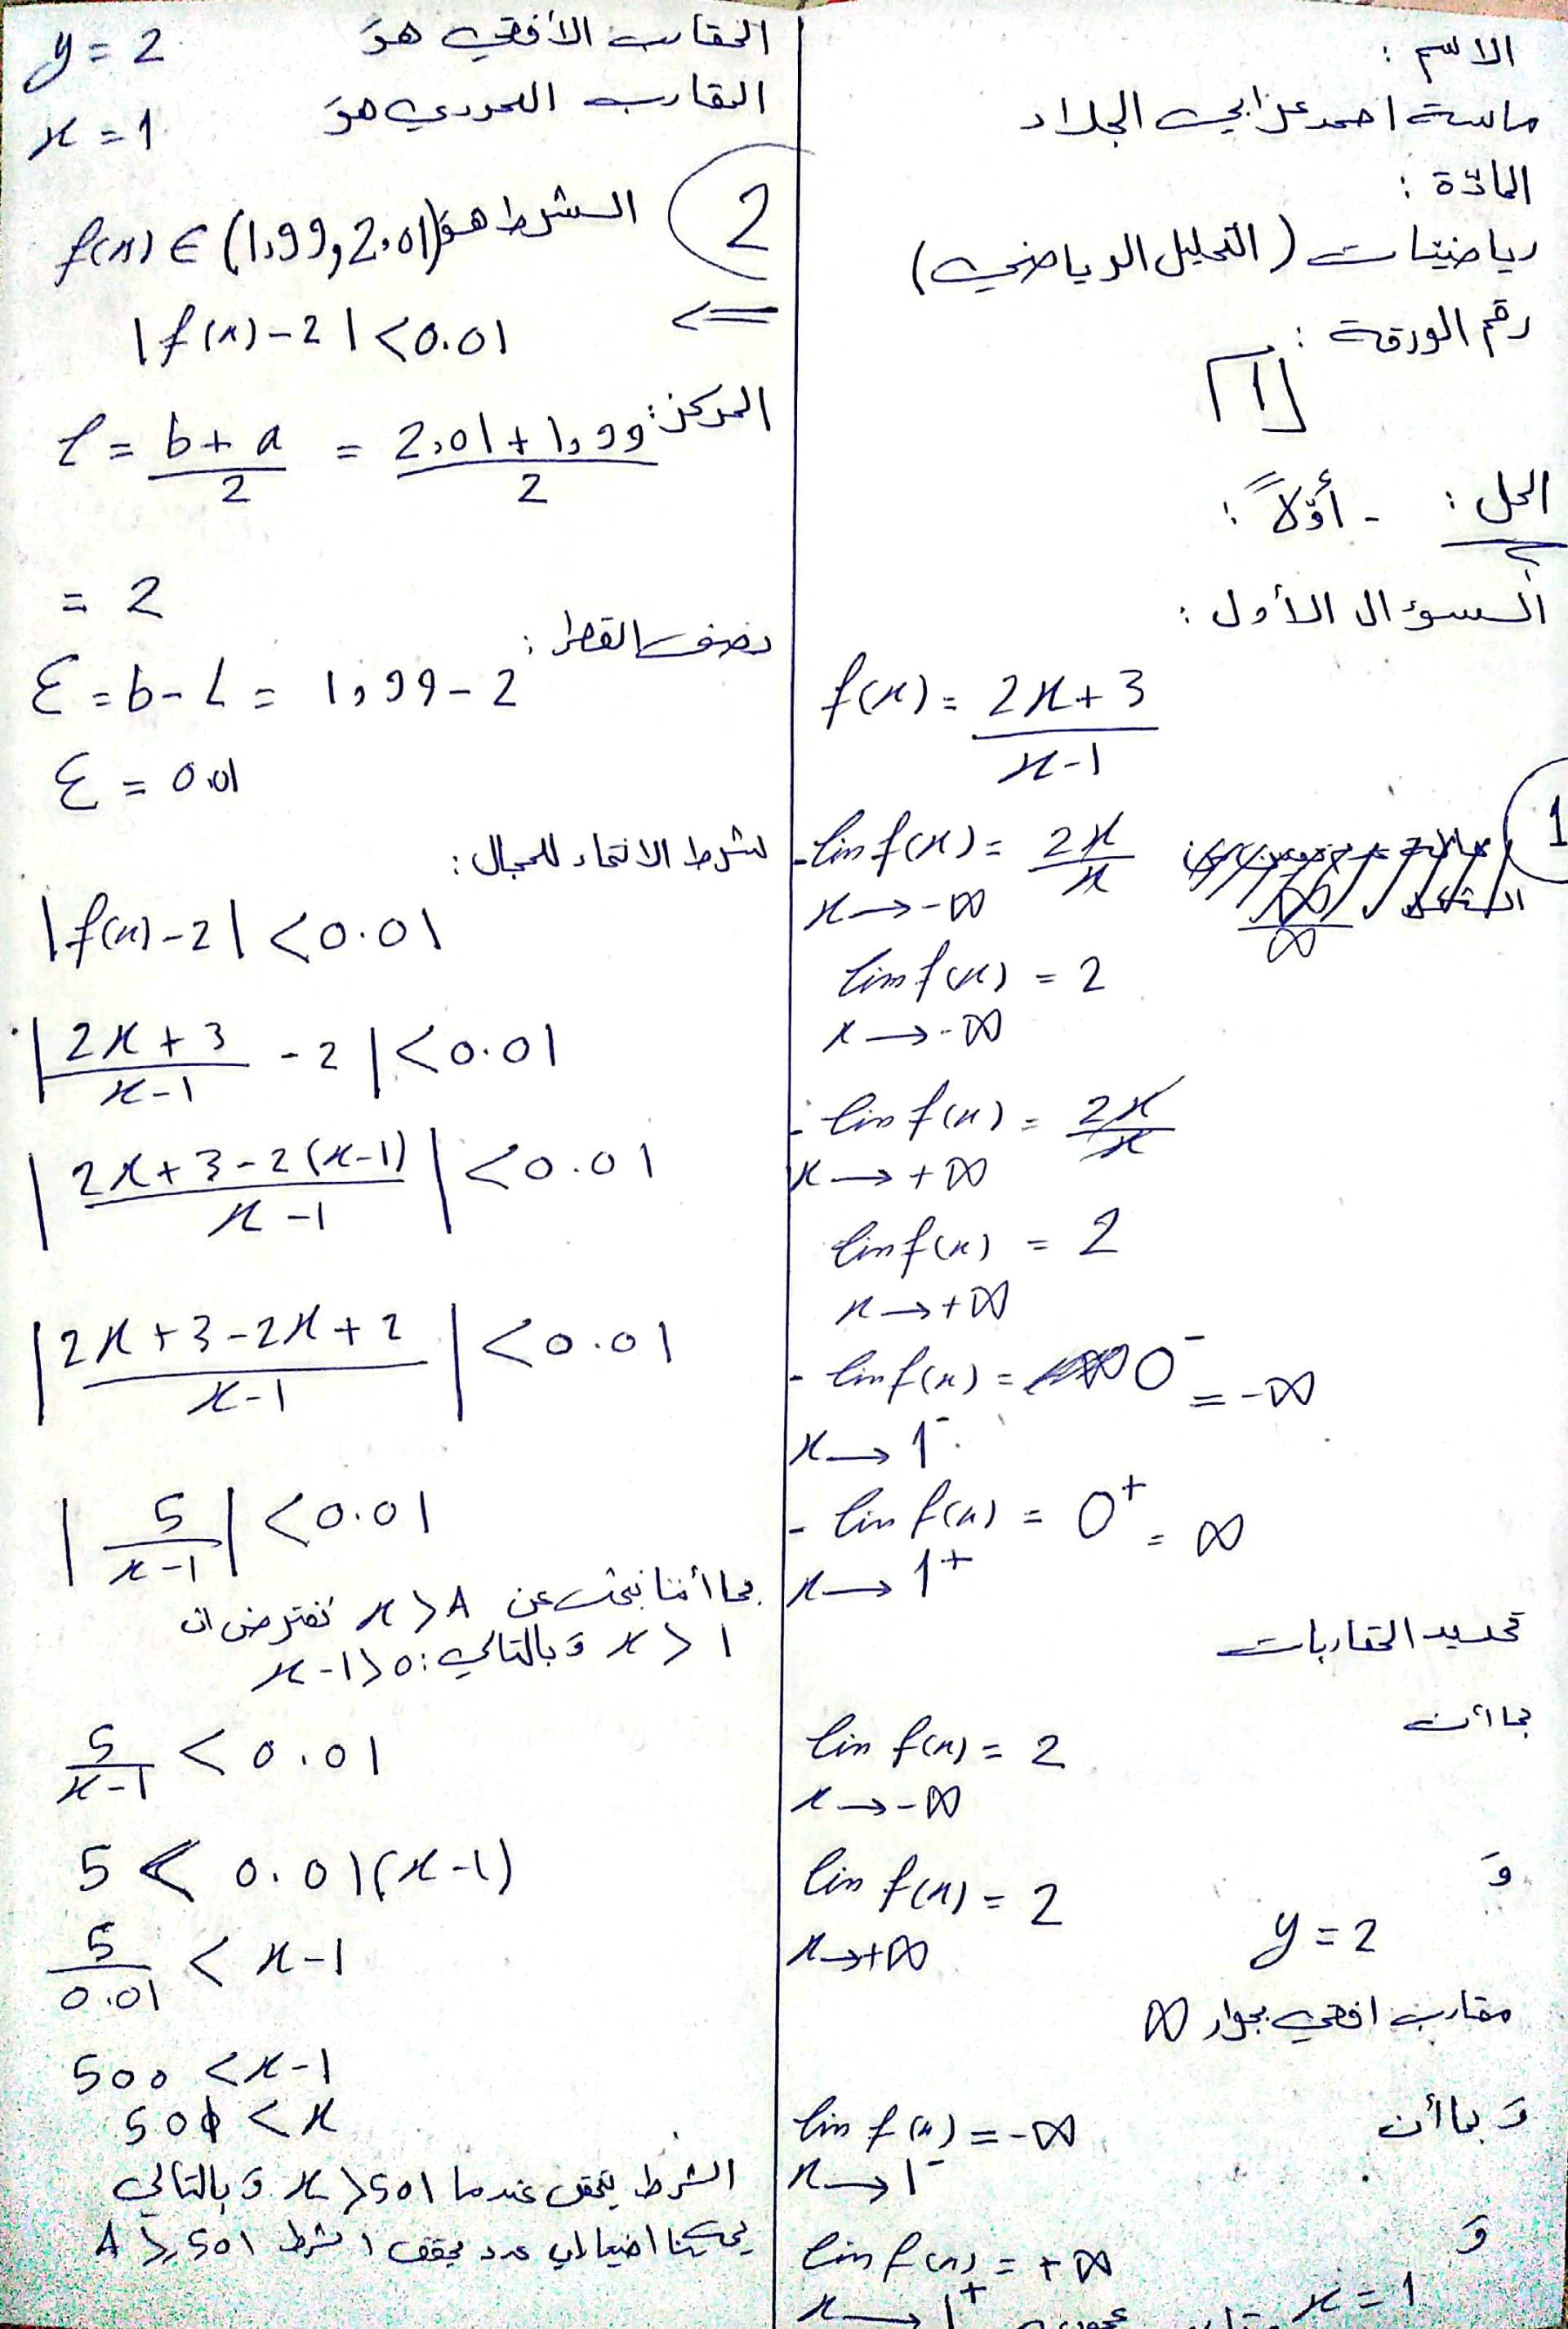 الاسم :
ماسة احمد عزابي الجلاد
المادّة :
رياضيّات (التحليل الرياضي)
رقم الورقة :
1
الحل : - أوّلاً :
السوؤال الأول :
f(x) = (2x+3)/(x-1)
1
- lim f(x) = 2x/x
x → -∞
lim f(x) = 2
x → -∞
- lim f(x) = 2x/x
x → +∞
lim f(x) = 2
x → +∞
- lim f(x) = 0⁻ = -∞
x → 1⁻
- lim f(x) = 0⁺ = ∞
x → 1⁺
تحديد المقاربات
بما أن
lim f(x) = 2
x → -∞
وَ
lim f(x) = 2
x → +∞
y = 2
مقارب افقي بجوار ∞
وَ بما أن
lim f(x) = -∞
x → 1⁻
وَ
lim f(x) = +∞
x → 1⁺
x = 1
المقارب الأفقي هوَ y = 2
المقارب العمودي هوَ x = 1
2 الشرط هوَ f(x) ∈ (1,99, 2.01)
<= |f(x)-2| < 0.01
المركز : l = (b+a)/2 = (2,01+1,99)/2
= 2
نصف القطر :
ε = b-L = 1,99-2
ε = 0.01
شرط الانتماء للمجال :
|f(x)-2| < 0.01
|(2x+3)/(x-1) - 2| < 0.01
|(2x+3-2(x-1))/(x-1)| < 0.01
|(2x+3-2x+2)/(x-1)| < 0.01
|5/(x-1)| < 0.01
بما أننا نبحث عن x > A نفترض ان
x > 1 وَ بالتالي : x-1 > 0
5/(x-1) < 0.01
5 < 0.01(x-1)
5/0.01 < x-1
500 < x-1
501 < x
الشرط يتحقق عندما x > 501 وَ بالتالي
يمكننا اختيار اي عدد يحقق الشرط A ≥ 501